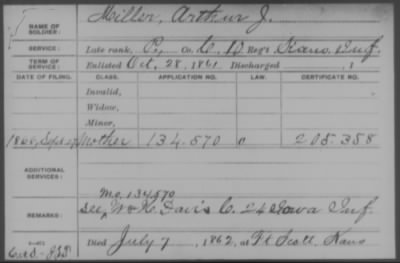 NAME OF SOLDIER: Miller, Arthur J.
SERVICE: Late rank, P, Co. C, 10 Reg't Kans. Inf.
TERM OF SERVICE: Enlisted Oct. 28, 1861 Discharged , 1
DATE OF FILING. CLASS. APPLICATION NO. LAW. CERTIFICATE NO.
Invalid,
Widow,
Minor,
1868, Sept. Mother 134.570 205.358
ADDITIONAL SERVICES:
Mo. 134570
REMARKS: See, Wm K. Davis C. 24 Iowa Inf.
Died July 7, 1862, at Ft Scott, Kans